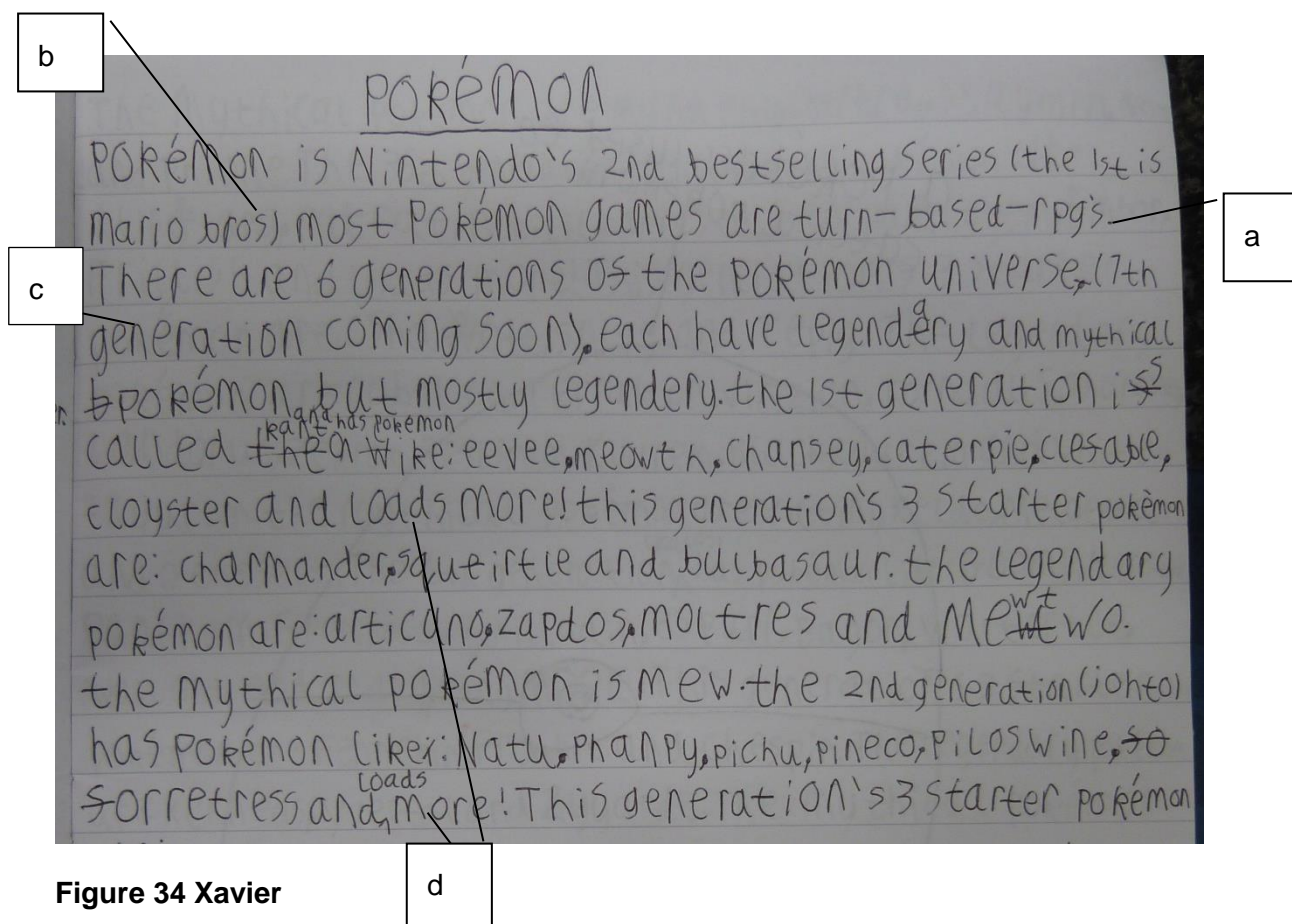 b
Pokémon
Pokémon is Nintendo's 2nd bestselling series (the 1st is
mario bros) most Pokémon games are turn-based-rpg's.
a
There are 6 generations of the pokémon universe, (7th
c
generation coming soon), each have legendery and mythical
a
pokémon, but mostly legendery. the 1st generation is
s
kanto and has pokémon
called the a like: eevee, meowth, chansey, caterpie, clefable,
cloyster and loads more! this generation's 3 starter pokémon
are: charmander, squirtle and bulbasaur. the legendary
pokémon are: articuno, zapdos, moltres and Mewtwo.
wt
the mythical pokémon is mew. the 2nd generation (johto)
has pokémon like: Natu, Phanpy, pichu, pineco, Piloswine, so
loads
forretress and more! This generation's 3 starter pokémon
d
Figure 34 Xavier